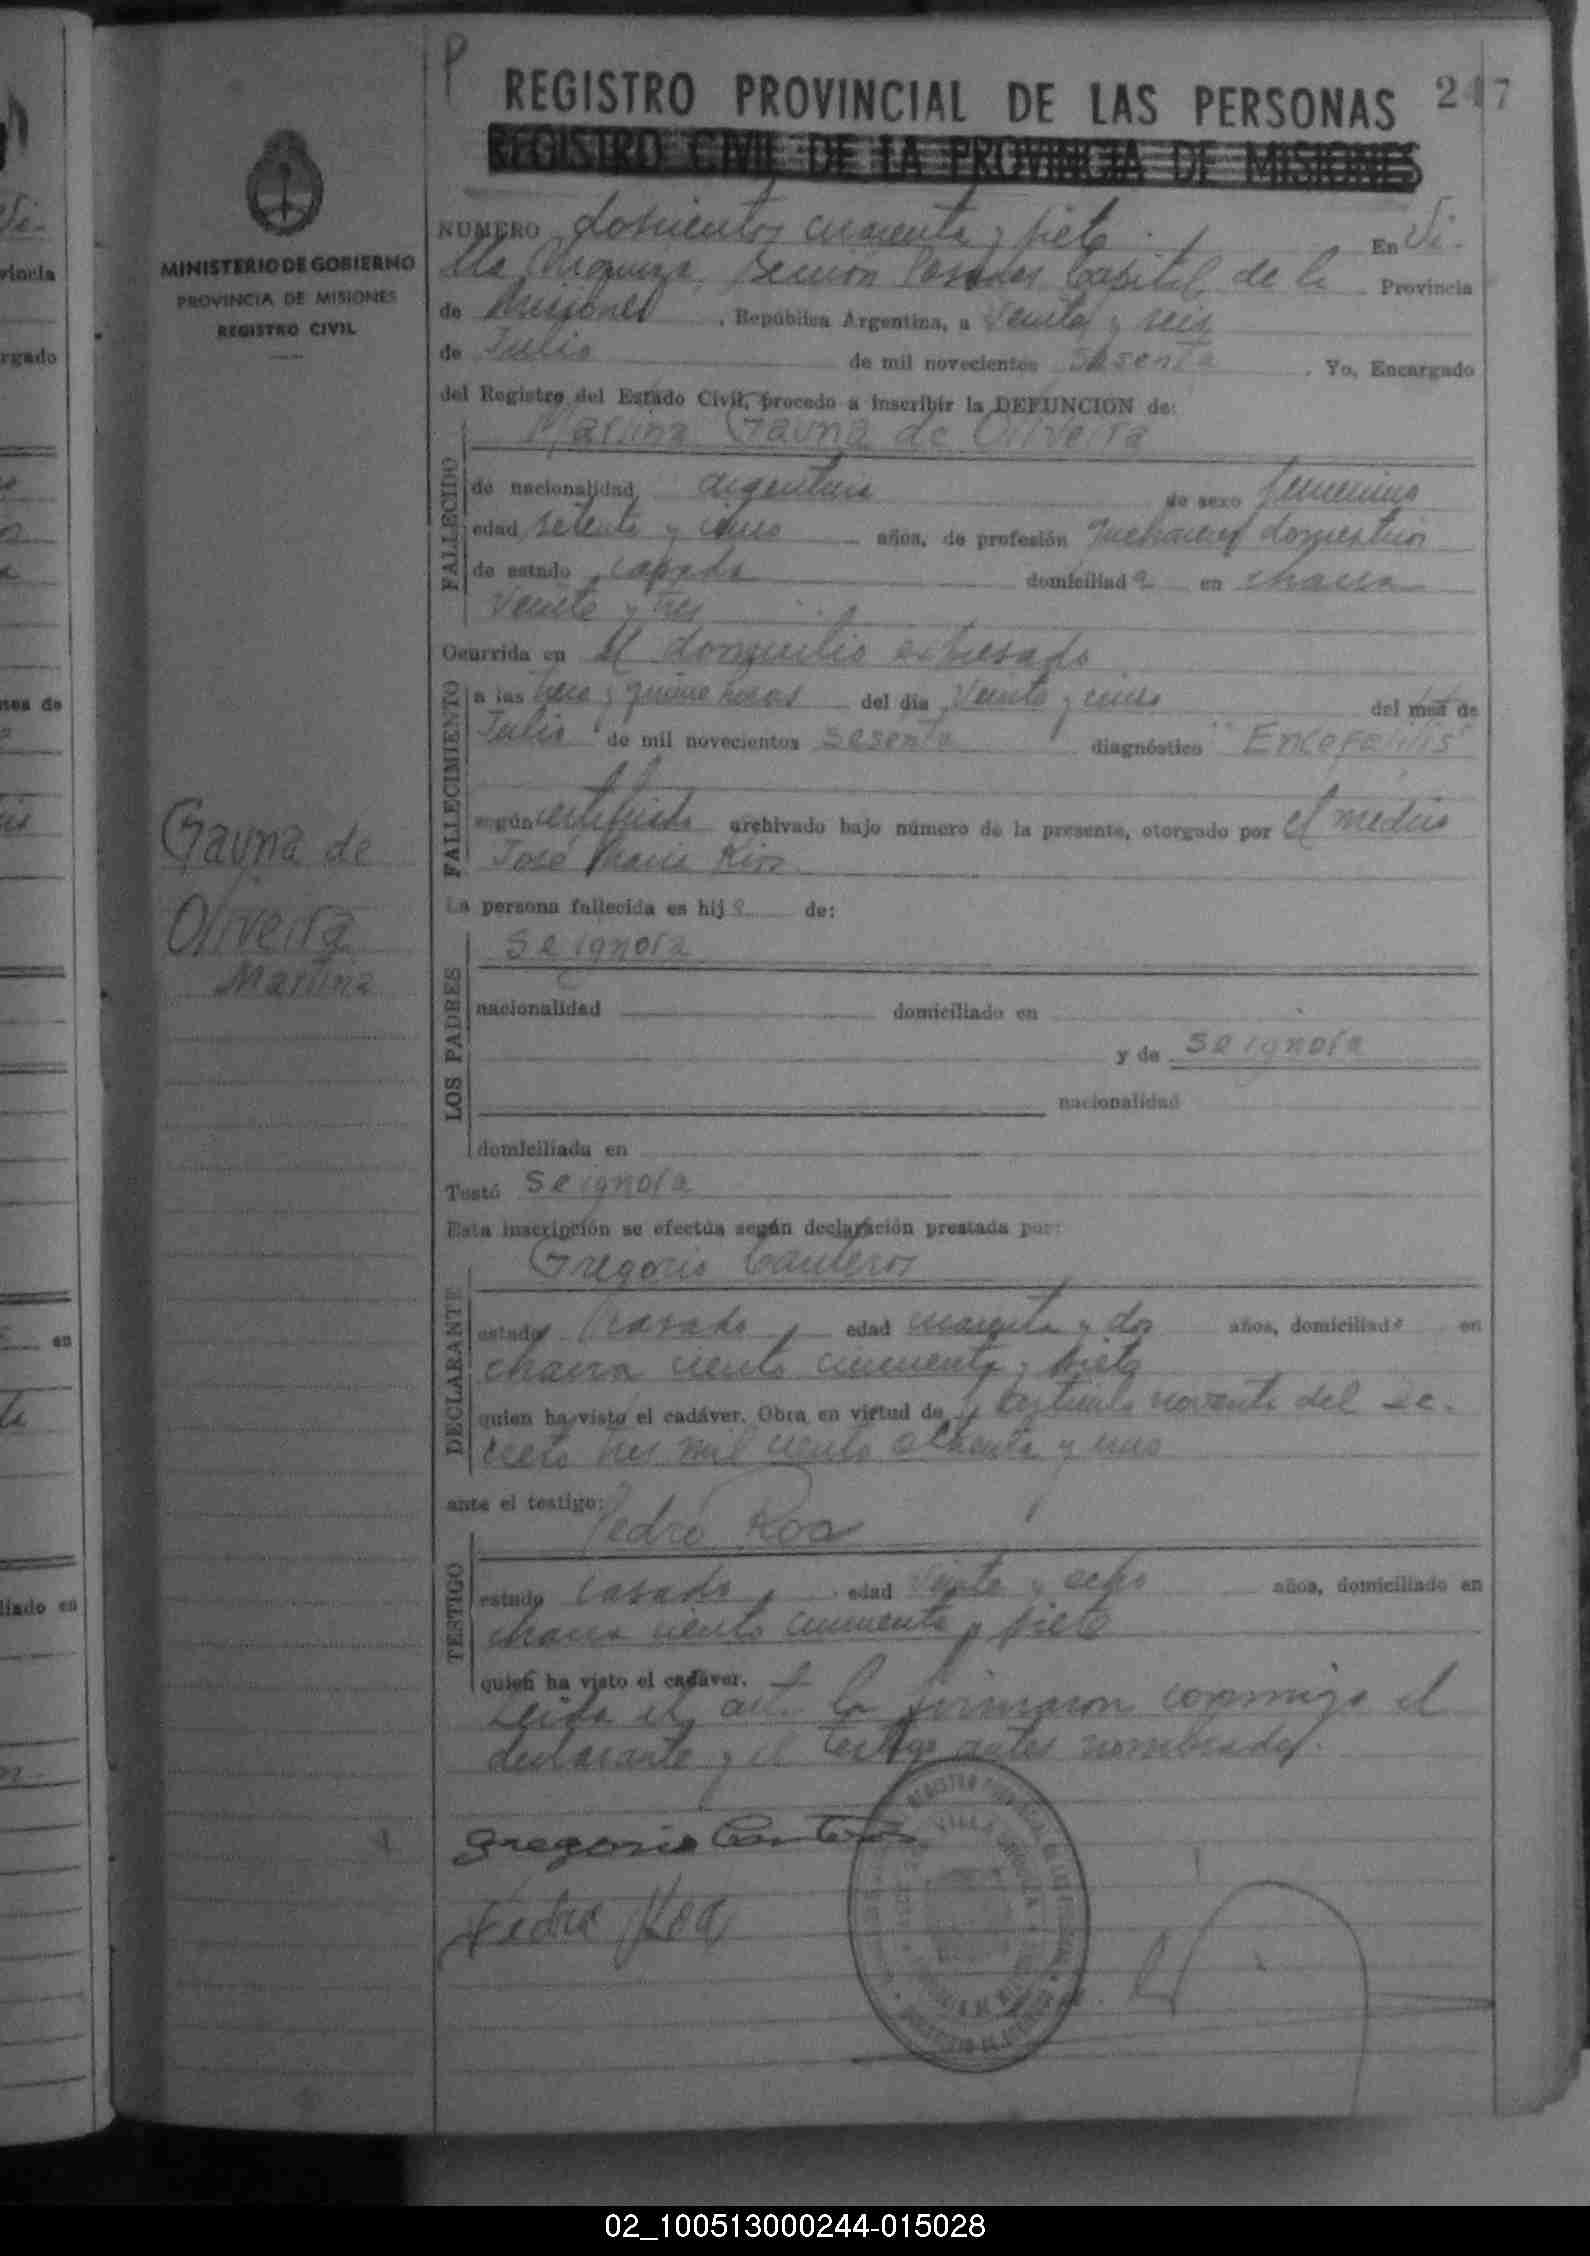 P
REGISTRO PROVINCIAL DE LAS PERSONAS 247
REGISTRO CIVIL DE LA PROVINCIA DE MISIONES
MINISTERIO DE GOBIERNO
PROVINCIA DE MISIONES
REGISTRO CIVIL
NUMERO doscientos cuarenta y siete. En Vi-
lla Urquiza, Sección Posadas Capital de la Provincia
de Misiones, República Argentina, a veinte y seis
de Julio de mil novecientos sesenta. Yo, Encargado
del Registro del Estado Civil, procedo a inscribir la DEFUNCION de:
Martina Gauna de Oliveira
FALLECIDO
de nacionalidad argentina de sexo femenino
edad setenta y cinco años, de profesión quehaceres domesticos
de estado casada domiciliada en chacra
veinte y tres
Ocurrida en el domicilio expresado
FALLECIMIENTO
a las trece y quince horas del día veinte y cinco del mes de
Julio de mil novecientos sesenta diagnóstico "Encefalitis"
según certificado archivado bajo número de la presente, otorgado por el medico
José María Rios
Gauna de
Oliveira
Martina
La persona fallecida es hija de:
LOS PADRES
se ignora
nacionalidad domiciliado en
y de se ignora
nacionalidad
domiciliada en
Testó se ignora
Esta inscripción se efectúa según declaración prestada por:
DECLARANTE
Gregorio Canteros
estado casado, edad cuarenta y dos años, domiciliado en
chacra ciento cincuenta y siete
quien ha visto el cadáver. Obra en virtud de articulo noventa del de-
creto tres mil ciento ochenta y uno
ante el testigo:
TESTIGO
Pedro Roa
estado casado, edad veinte y ocho años, domiciliado en
chacra ciento cincuenta y siete
quien ha visto el cadáver.
Leida el acta la firmaron conmigo el
declarante y el testigo antes nombrados.
Gregorio Canteros
Pedro Roa
02_100513000244-015028